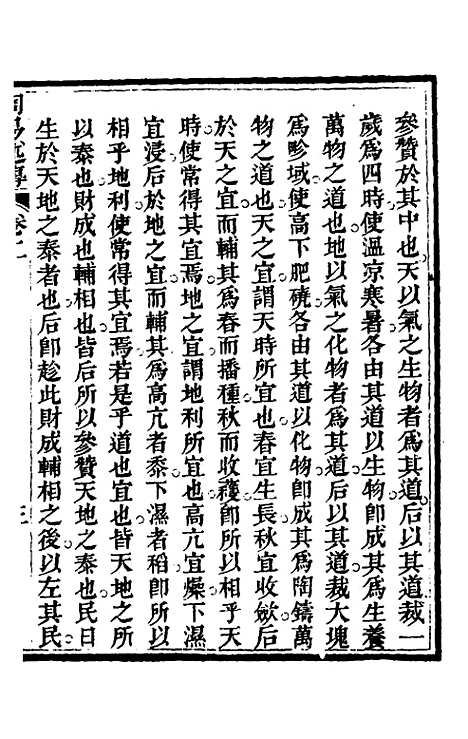 參贊於其中也天以氣之生物者爲其道后以其道裁一
歲爲四時使溫凉寒暑各由其道以生物卽成其爲生養
萬物之道也地以氣之化物者爲其道后以其道裁大塊
爲畛域使高下肥磽各由其道以化物卽成其爲陶鑄萬
物之道也天之宜謂天時所宜也春宜生長秋宜收斂后
於天之宜而輔其爲春而播種秋而收穫卽所以相乎天
時使常得其宜焉地之宜謂地利所宜也高亢宜燥下濕
宜浸后於地之宜而輔其爲高亢者黍下濕者稻卽所以
相乎地利使常得其宜焉若是乎道也宜也皆天地之所
以泰也財成也輔相也皆后所以參贊天地之泰也民日
生於天地之泰者也后卽趁此財成輔相之後以左其民
卷十一
三